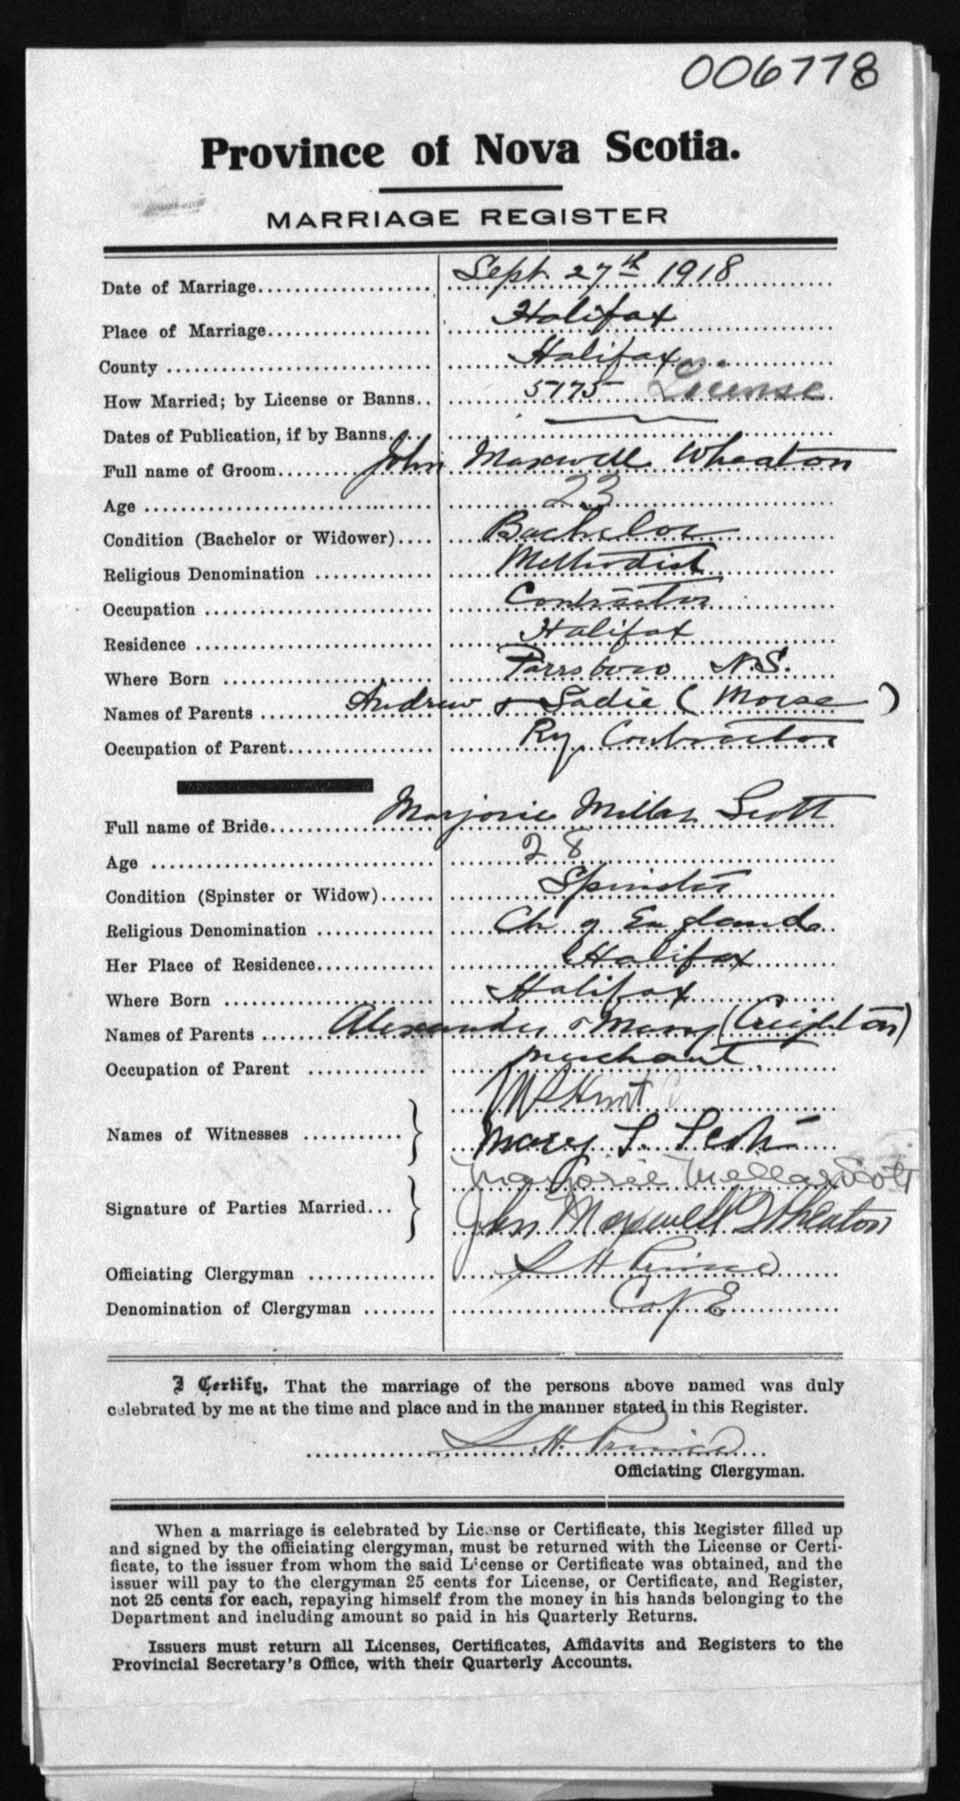 006778
Province of Nova Scotia.
MARRIAGE REGISTER
Date of Marriage Sept. 27th 1918
Place of Marriage Halifax
County Halifax
How Married; by License or Banns 5175 License
Dates of Publication, if by Banns
Full name of Groom John Maxwell Wheaton
Age 23
Condition (Bachelor or Widower) Bachelor
Religious Denomination Methodist
Occupation Contractor
Residence Halifax
Where Born Parrsboro N.S.
Names of Parents Andrew & Sadie (Morse)
Occupation of Parent Ry. Contractor
Full name of Bride Marjorie Millar Scott
Age 28
Condition (Spinster or Widow) Spinster
Religious Denomination Ch of England
Her Place of Residence Halifax
Where Born Halifax
Names of Parents Alexander & Mary (Creighton)
Occupation of Parent merchant.
Hunt
Names of Witnesses Mary Scott
Marjorie Mellar Scott
Signature of Parties Married John Maxwell Wheaton
Officiating Clergyman S H Prince
Denomination of Clergyman C of E
I Certify, That the marriage of the persons above named was duly
celebrated by me at the time and place and in the manner stated in this Register.
S H. Prince
Officiating Clergyman.
When a marriage is celebrated by License or Certificate, this Register filled up
and signed by the officiating clergyman, must be returned with the License or Certi-
ficate, to the issuer from whom the said License or Certificate was obtained, and the
issuer will pay to the clergyman 25 cents for License, or Certificate, and Register,
not 25 cents for each, repaying himself from the money in his hands belonging to the
Department and including amount so paid in his Quarterly Returns.
Issuers must return all Licenses, Certificates, Affidavits and Registers to the
Provincial Secretary's Office, with their Quarterly Accounts.